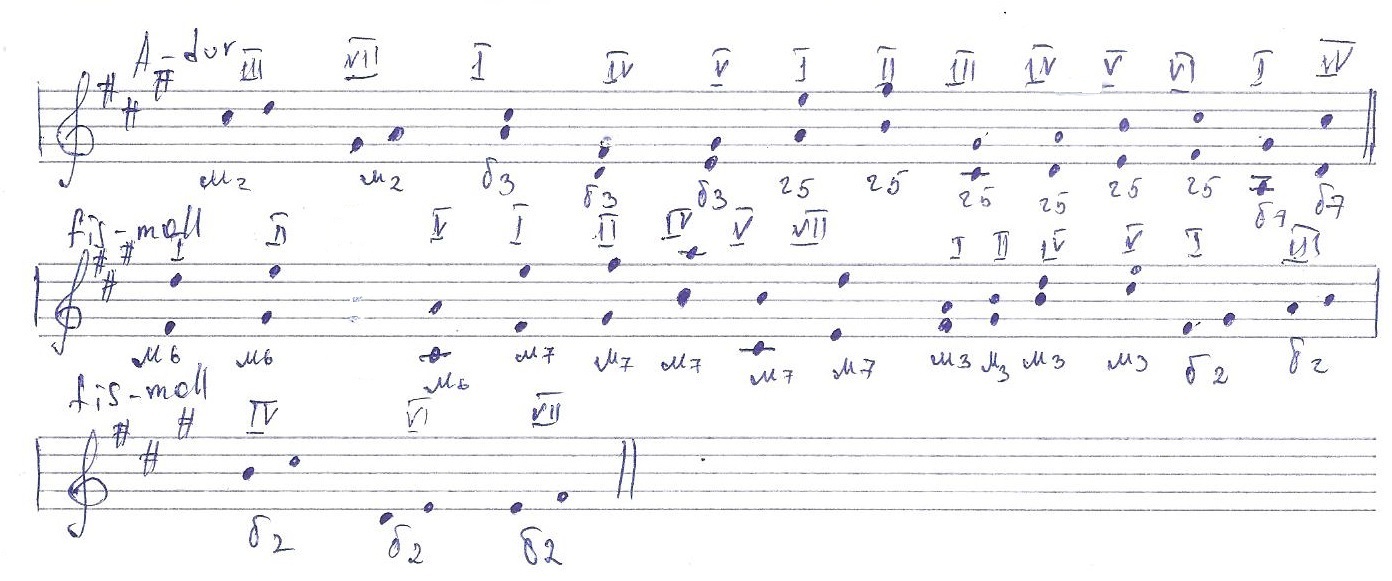 A-dur III VII I IV V I II III IV V VI I IV
м2 м2 б3 б3 б3 ч5 ч5 ч5 ч5 ч5 ч5 б7 б7
fis-moll
I II V I II IV V VII I II IV V I III
м6 м6 м6 м7 м7 м7 м7 м7 м3 м3 м3 м3 б2 б2
fis-moll
IV VI VII
б2 б2 б2